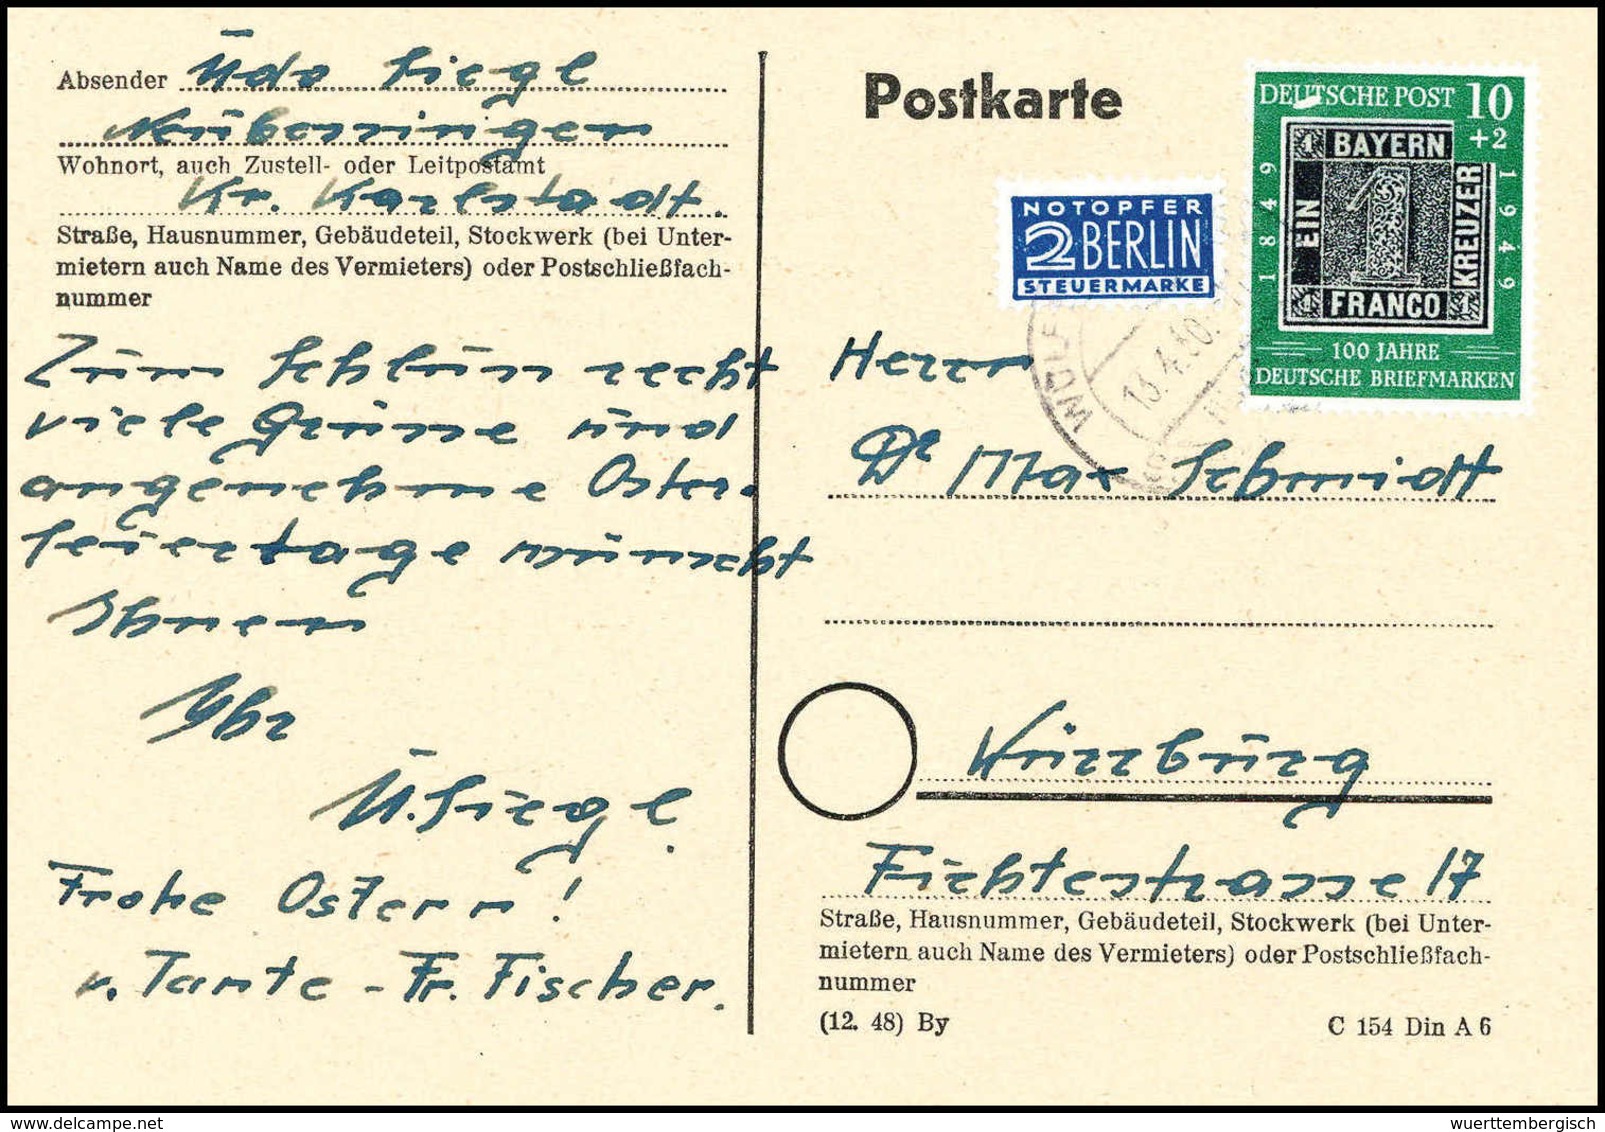 Absender Udo Siegl
Neubessingen
Wohnort, auch Zustell- oder Leitpostamt
Kr. Karlstadt.
Straße, Hausnummer, Gebäudeteil, Stockwerk (bei Unter-
mietern auch Name des Vermieters) oder Postschließfach-
nummer
Zum Schluss recht
viele Grüsse und
angenehme Oster-
feiertage wünscht
Ihnen
Ihr
U. Siegl.
Frohe Ostern!
v. Tante - Fr. Fischer.
Postkarte
NOTOPFER
2 BERLIN
STEUERMARKE
DEUTSCHE POST 10
+2
BAYERN
EIN
1
KREUZER
FRANCO
1849
1949
100 JAHRE
DEUTSCHE BRIEFMARKEN
13.4.50.
Herrn
Dr Max Schmidt
Würzburg
Fichtestrasse 17
Straße, Hausnummer, Gebäudeteil, Stockwerk (bei Unter-
mietern auch Name des Vermieters) oder Postschließfach-
nummer
(12. 48) By
C 154 Din A 6
wuerttembergisch